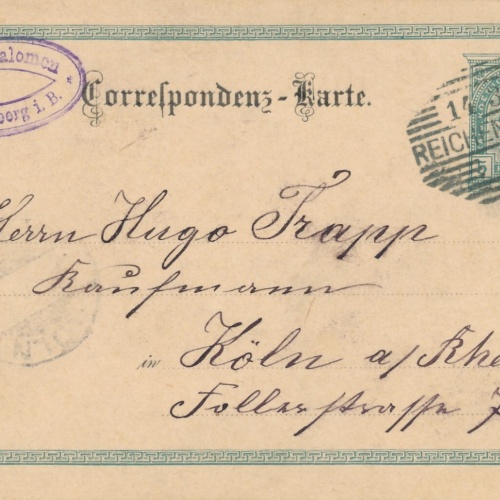 alomon
berg i. B.
Correspondenz-Karte.
14
REICHEN
5
Herrn Hugo Trapp
Kaufmann
in Köln a/Rhe
Follerstrasse